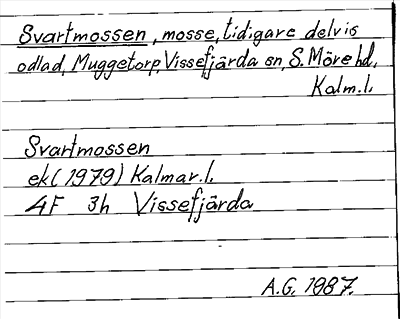 Svartmossen, mosse, tidigare delvis
odlad, Muggetorp, Vissefjärda sn, S. Möre hd,
Kalm. l.
Svartmossen
ek (1979) Kalmar. l.
4F 3h Vissefjärda
A.G. 1987.